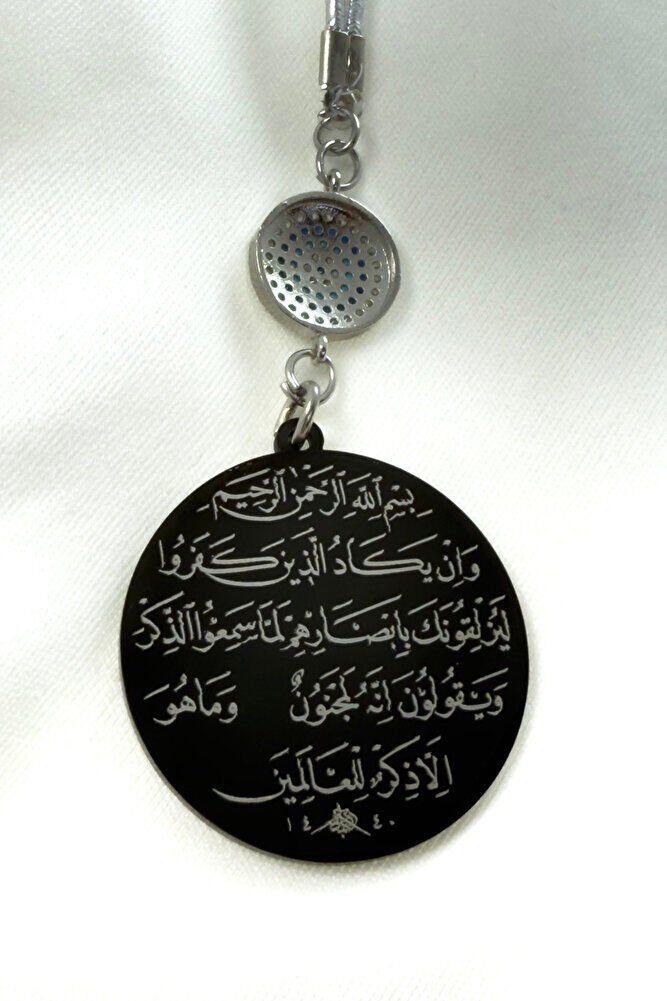 بِسْمِ اللَّهِ الرَّحْمَنِ الرَّحِيمِ
وَاِنْ يَكَادُ الَّذِينَ كَفَرُوا
لَيُزْلِقُونَكَ بِاَبْصَارِهِمْ لَمَّا سَمِعُوا الذِّكْرَ
وَيَقُولُونَ اِنَّهُ لَمَجْنُونٌ وَمَا هُوَ
اِلَّا ذِكْرٌ لِلْعَالَمِينَ
١٤٤٠